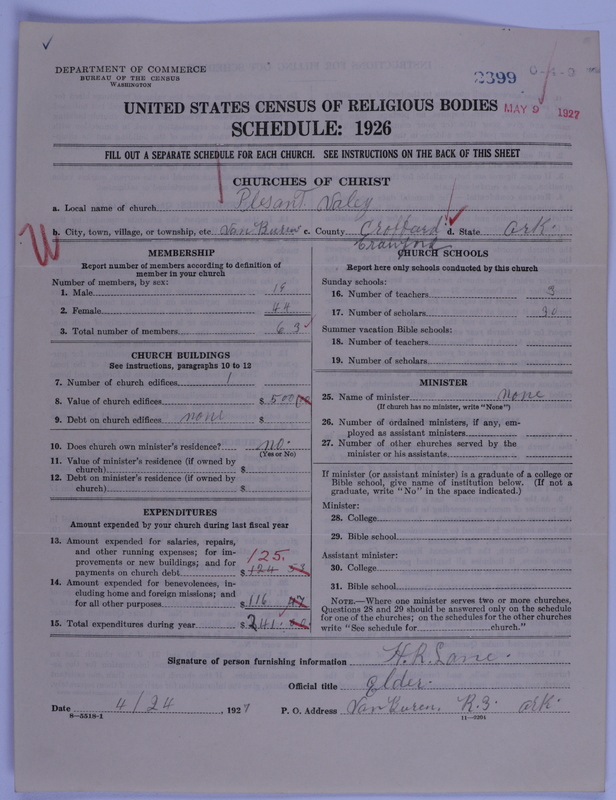 DEPARTMENT OF COMMERCE
BUREAU OF THE CENSUS
WASHINGTON
2399
MAY 9 1927
UNITED STATES CENSUS OF RELIGIOUS BODIES
SCHEDULE: 1926
FILL OUT A SEPARATE SCHEDULE FOR EACH CHURCH. SEE INSTRUCTIONS ON THE BACK OF THIS SHEET
CHURCHES OF CHRIST
a. Local name of church Plesant Valey
b. City, town, village, or township, etc. Van Buren c. County Croffard d. State Ark.
Crawford
MEMBERSHIP
Report number of members according to definition of
member in your church
Number of members, by sex:
1. Male 19
2. Female 44
3. Total number of members 63
CHURCH BUILDINGS
See instructions, paragraphs 10 to 12
7. Number of church edifices 1
8. Value of church edifices $ 500
9. Debt on church edifices none $
10. Does church own minister's residence? no.
(Yes or No)
11. Value of minister's residence (if owned by
church) $
12. Debt on minister's residence (if owned by
church) $
EXPENDITURES
Amount expended by your church during last fiscal year
13. Amount expended for salaries, repairs,
and other running expenses; for im-
provements or new buildings; and for 125.
payments on church debt $ 124
14. Amount expended for benevolences, in-
cluding home and foreign missions; and
for all other purposes $ 116
15. Total expenditures during year $ 241.
CHURCH SCHOOLS
Report here only schools conducted by this church
Sunday schools:
16. Number of teachers 3
17. Number of scholars 30
Summer vacation Bible schools:
18. Number of teachers
19. Number of scholars
MINISTER
25. Name of minister none
(If church has no minister, write "None")
26. Number of ordained ministers, if any, em-
ployed as assistant ministers
27. Number of other churches served by the
minister or his assistants
If minister (or assistant minister) is a graduate of a college or
Bible school, give name of institution below. (If not a
graduate, write "No" in the space indicated.)
Minister:
28. College
29. Bible school
Assistant minister:
30. College
31. Bible school
NOTE.—Where one minister serves two or more churches,
Questions 28 and 29 should be answered only on the schedule
for one of the churches; on the schedules for the other churches
write "See schedule for church."
Signature of person furnishing information H. R. Lane.
Official title Elder.
Date 4/24, 1927 P. O. Address Van Buren, R.3. Ark.
8-5518-1